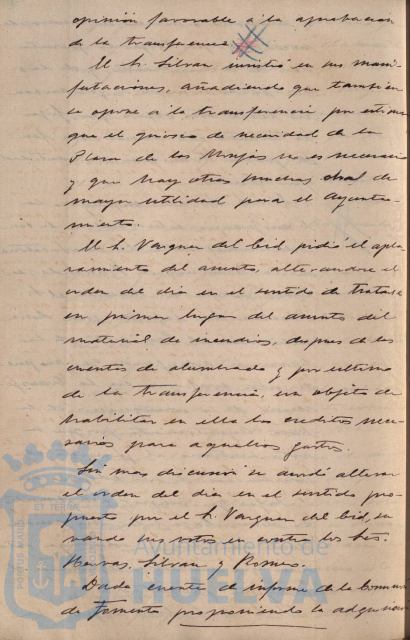 opinión favorable a la aprobacion
de la transferencia
El Sr. Silvan insistió en sus mani-
festaciones, añadiendo que tambien
se opone a la transferencia por estimar
que el quiosco de necesidad de la
Plaza de las Monjas no es necesario
y que hay otras muchas de
mayor utilidad para el Ayunta-
miento.
El Sr. Vazquez del Cid pidió el apla-
zamiento del asunto, alterandose el
orden del dia en el sentido de tratarse
en primer lugar del asunto del
material de incendios, despues de las
cuentas de alumbrado y por ultimo
de la transferencia, con objeto de
habilitar en ella los creditos nece-
sarios para aquellos gastos.
Sin mas discusion se acordó alterar
el orden del dia en el sentido pro-
puesto por el Sr. Vazquez del Cid, sal-
vando sus votos en contra los Sres.
Hervas, Silvan y Romero.
Dada cuenta de informe de la Comision
de Fomento proponiendo la adquisicion
ET TERRÆ
PORTUS MARIS
Ayuntamiento de
HUELVA